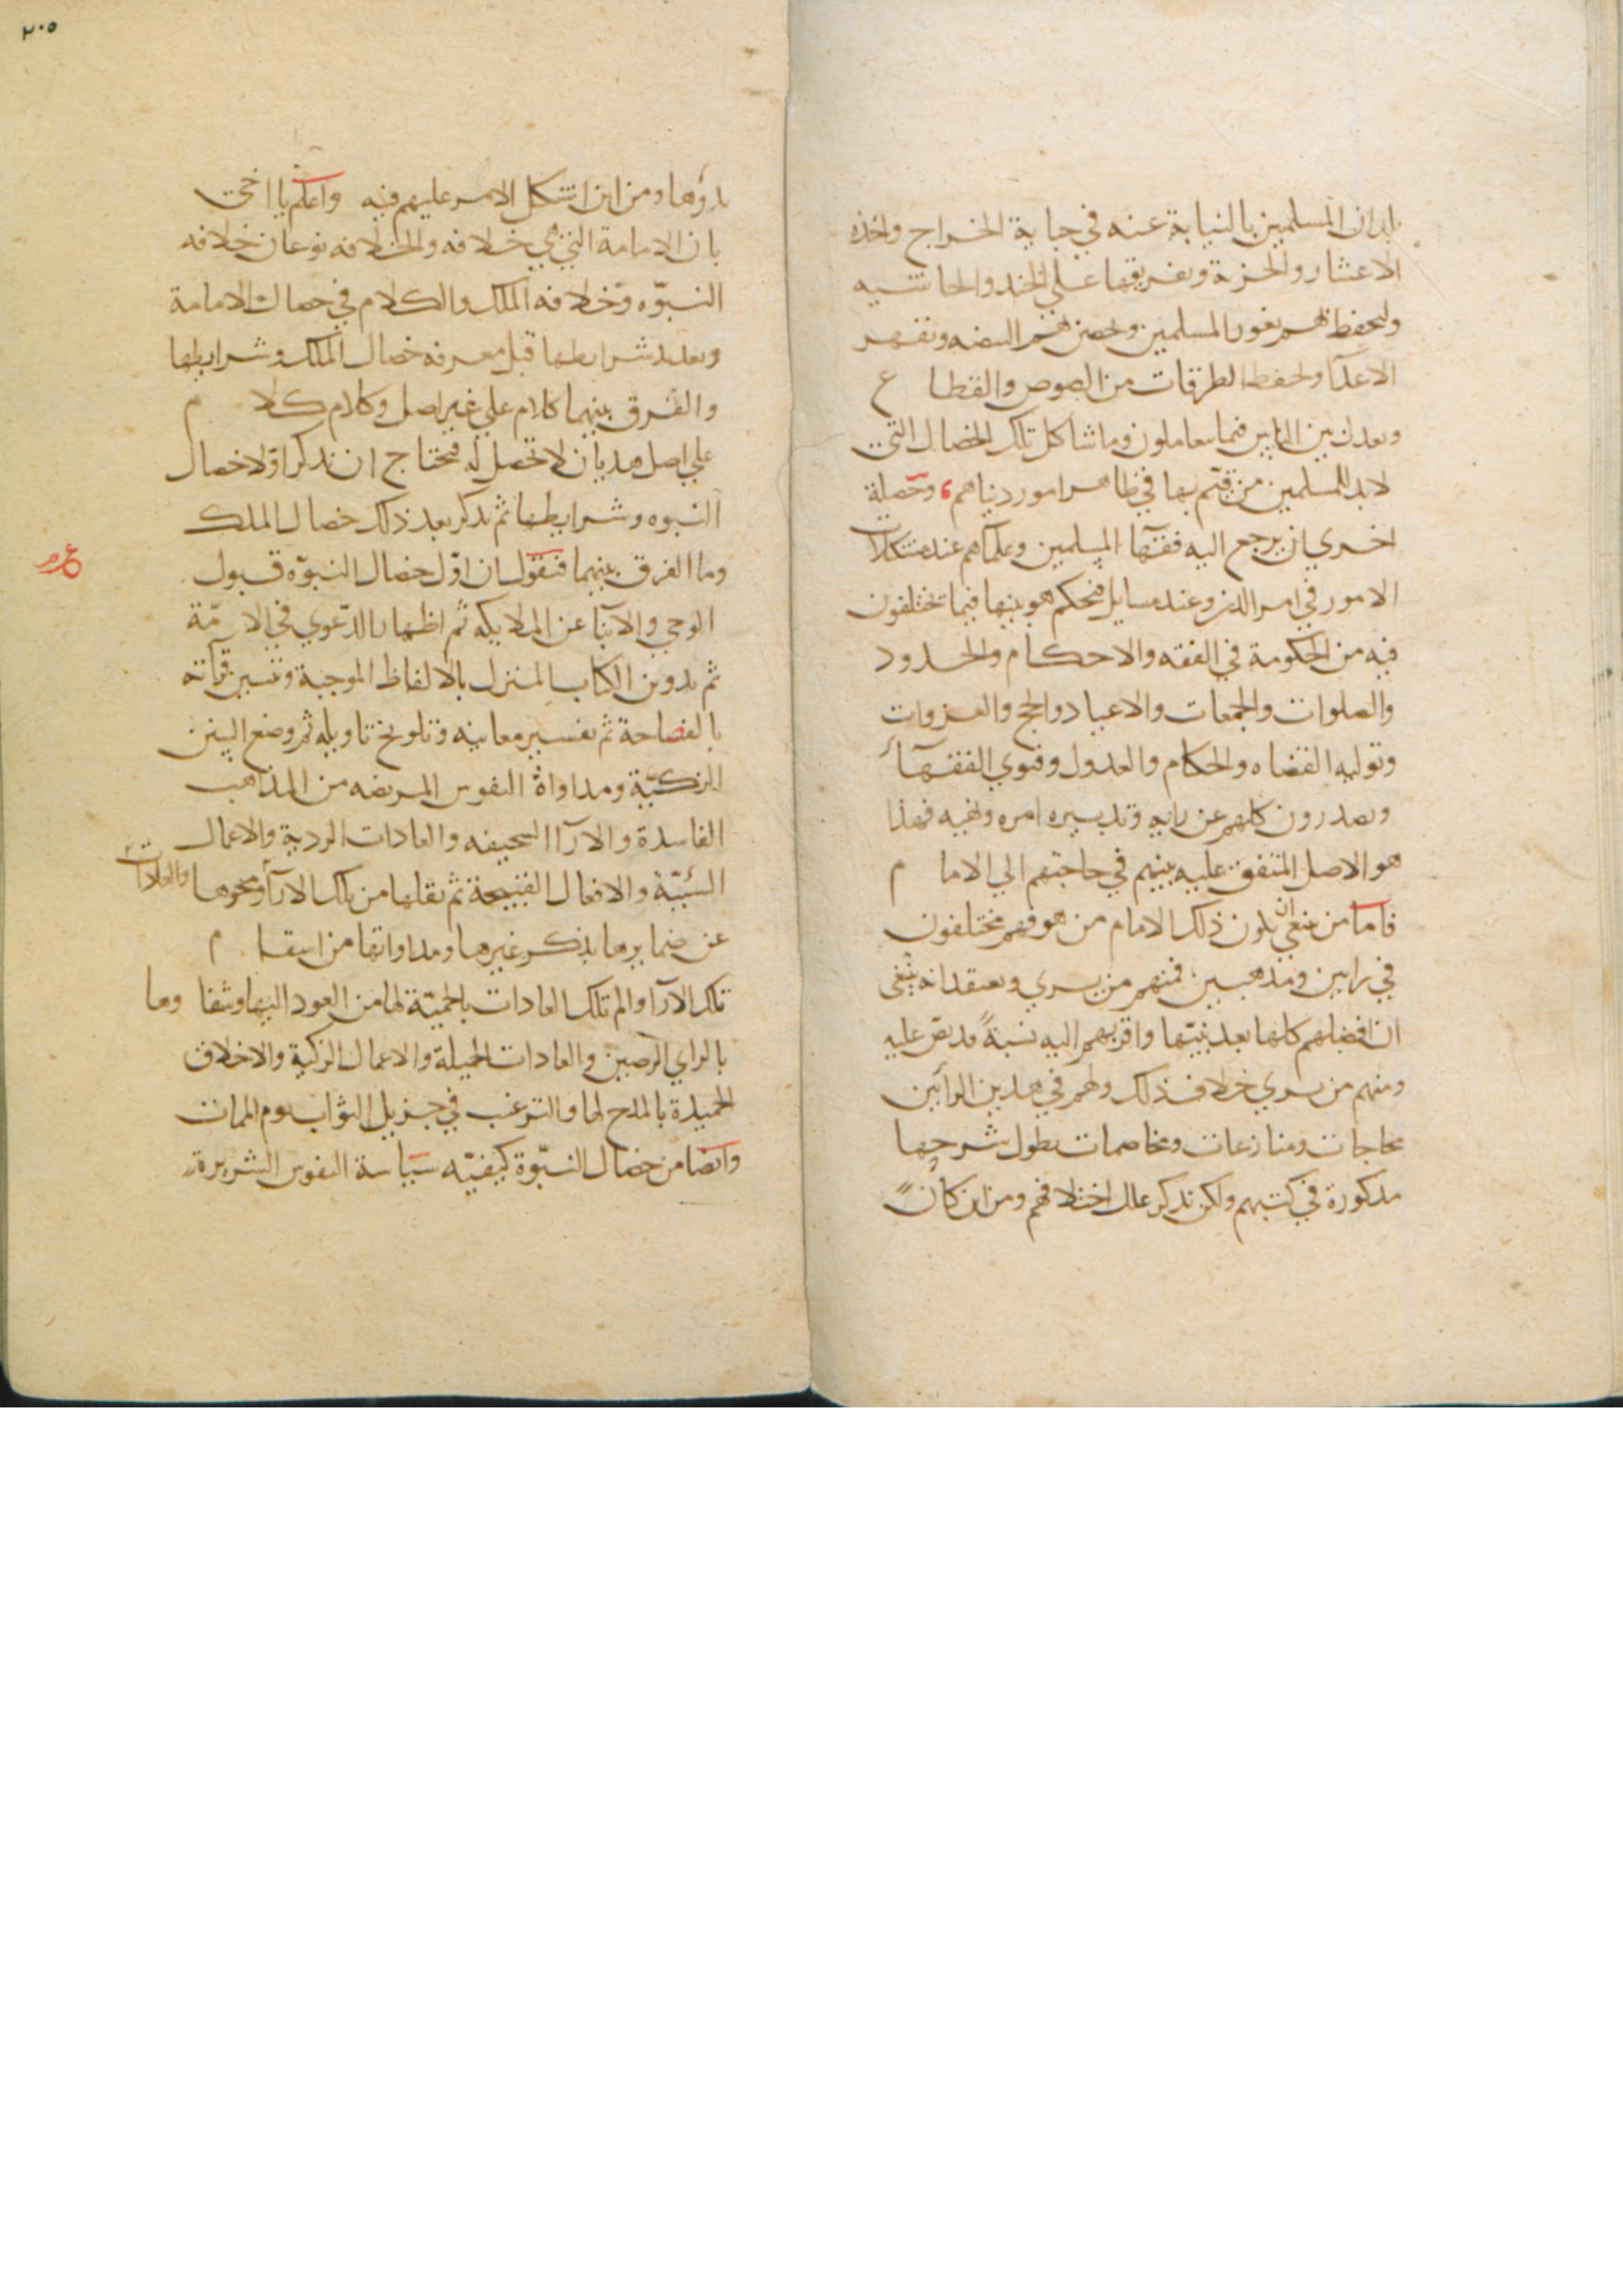 بلدان المسلمين بالنيابة عنه في جباية الخراج واخذه
الاعشار والجزية وتفريقها علي الجند والحاشيه
وليحفظ بهم ثغور المسلمين وتحصن بهم البيضه وتقهر
الاعداء وتحفظ الطرقات من اللصوص والقطا ع
وبعدل بين الناس فيما يتعاملون وما شاكل تلك الخصال التي
لا بد للمسلمين من قيّم بها في ظاهر امور دنياهم، وخصلة
اخري ان يرجع اليه فقهاء المسلمين وعلماهم عند مشكلات
الامور في امر الدين وعند مسايل فيحكم هو بينها فيما تختلفون
فيه من الحكومة في الفقه والاحكام والحدود
والصلوات والجمعات والاعياد والحج والغزوات
وتوليه القضاه والحكام والعدول وفتوي الفقهاء
ويصدرون كلهم عن رايه وتدبيره امره ونهيه فهذا
هو الاصل المتفق عليه بينهم في حاجتهم الي الاما م
فاما من ينبغي ان يكون ذلك الامام من هو فهم مختلفون
في رايين ومذهبين فمنهم من يري ويعتقد انه ينبغي
ان افضلهم كلها بعد نبيّها واقربهم اليه نسبةً قد نصّ عليه
ومنهم من يري خلاف ذلك ولهم في هذين الرأيين
محاجات ومنازعات ومخاصمات يطول شرحها
مذكورة في كتبهم ولكن نذكر علل اختلافهم ومن اين كان
٢٠٥
بدؤها ومن اين اشكل الامر عليهم فيه واعلم يا اخي
بان الامامة التي هي خلافه والخلافه نوعان خلافه
النبوّه وخلافه الملك والكلام في خصال الامامة
وتعديد شرايطها قبل معرفه خصال الملك وشرايطها
والفرق بينهما كلام علي غير اصل وكلام كلا م
علي اصل هذيان لا تحصل له فتحتاج ان نذكر اوّلا خصال
النبوه وشرايطها ثم نذكر بعد ذلك خصال الملك
وما الفرق بينهما فنقول ان اوّل خصال النبوّه قبول
الوحي والانبا عن الملايكه ثم اظهار الدّعوي في الامّة
ثم تدوين الكتاب المنزل بالالفاظ الموجبة وتبيين قرآته
بالفصاحة ثم تفسير معانيه وتلويح تاويله ثم وضع السنن
الزكيّة ومداواة النفوس المريضه من المذاهب
الفاسدة والاراا السخيفه والعادات الردية والاعمال
السّئيّة والافعال القبيحة ثم نقلها من تلك الاراء ومحوها
والعادات
عن ضمايرها بذكر غيرها ومداواتها من اسقا م
تلك الارا والم تلك العادات بالحميّة لها من العود اليها وشفا وها
بالراي الرصين والعادات الجميلة والاعمال الزكية والاخلاق
الحميدة بالمدح لها والترغيب في جزيل الثواب يوم المات
وايضا من خصال النبّوة كيفيّه سياسة النفوس الشريرة